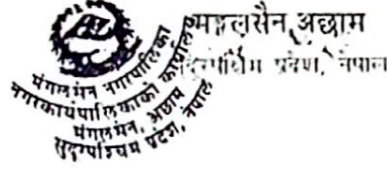 मङ्गलसेन, अछाम
सुदूरपश्चिम प्रदेश, नेपाल
मंगलसेन नगरपालिका
नगरकार्यपालिकाको कार्यालय
मंगलसेन, अछाम
सुदूरपश्चिम प्रदेश, नेपाल